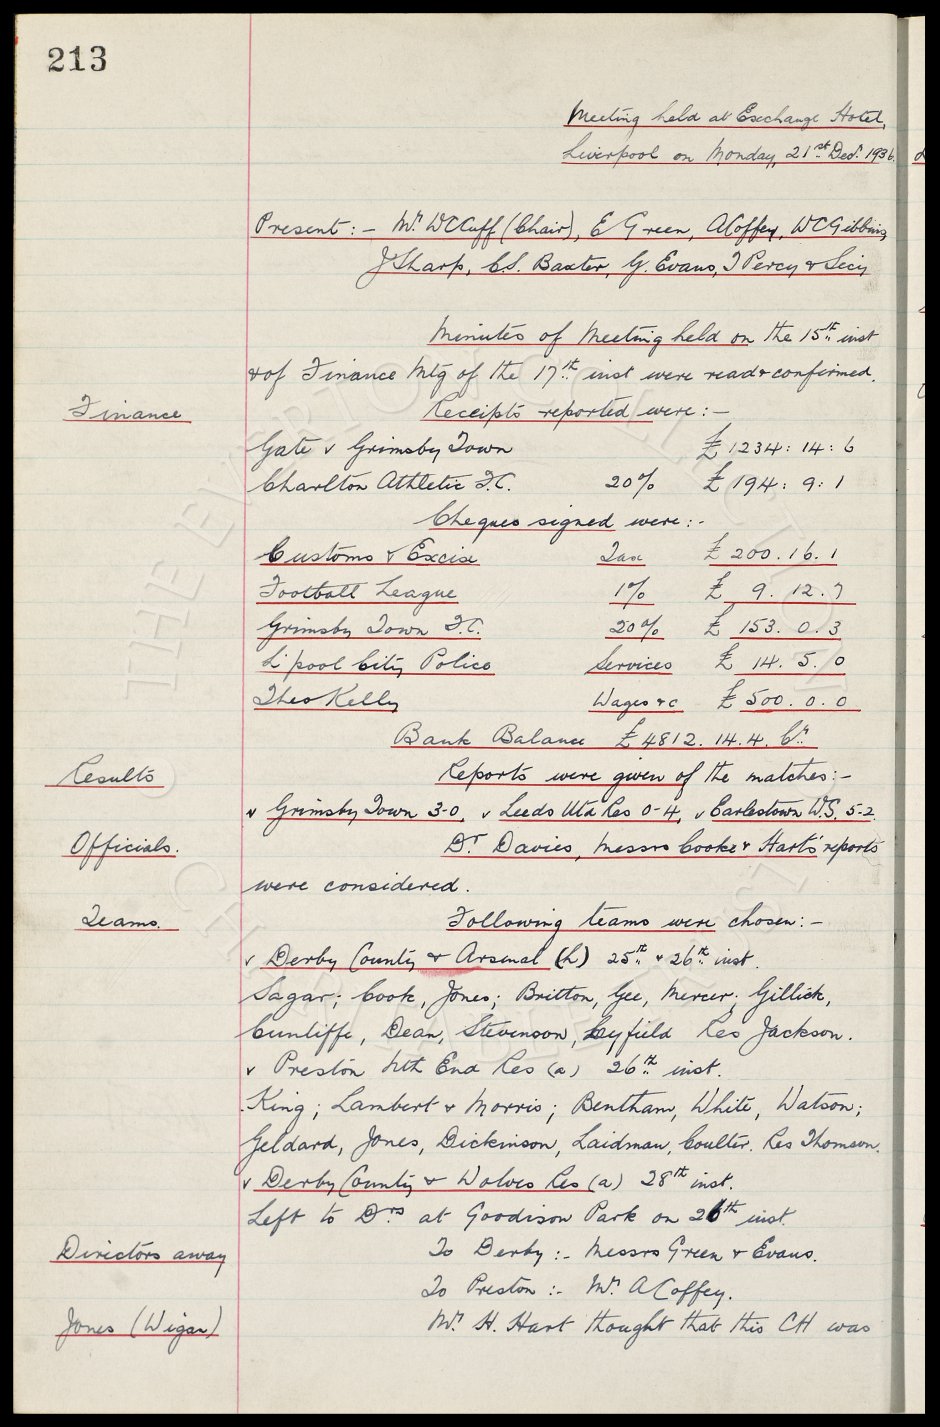 213
Meeting held at Exchange Hotel,
Liverpool on Monday, 21st Decr. 1936.
Present: - Mr. WC Cuff (Chair), E Green, A Coffey, WC Gibbins,
J Sharp, C.S. Baxter, G. Evans, T Percy & Secy
Minutes of Meeting held on the 15th inst
& of Finance Mtg of the 17th inst were read & confirmed.
Finance Receipts reported were: -
Gate v Grimsby Town £1234: 14: 6
Charlton Athletic F.C. 20% £ 194: 9: 1
Cheques signed were: -
Customs & Excise Tax £ 200. 16. 1
Football League 1% £ 9. 12. 7
Grimsby Town F.C. 20% £ 153. 0. 3
L'pool City Police Services £ 14. 5. 0
Theo Kelly Wages &c £ 500. 0. 0
Bank Balance £4812. 14. 4. Cr.
Results Reports were given of the matches: -
v Grimsby Town 3-0, v Leeds Utd Res 0-4, v Earlestown W.S. 5-2.
Officials. Dr Davies, Messrs Cooke & Hart's reports
were considered.
Teams. Following teams were chosen: -
v Derby County & Arsenal (h) 25th & 26th inst.
Sagar; Cook, Jones; Britton, Gee, Mercer; Gillick,
Cunliffe, Dean, Stevenson, Leyfield Res Jackson.
v Preston Nth End Res (a) 26th inst.
King; Lambert & Morris; Bentham, White, Watson;
Geldard, Jones, Dickinson, Laidman, Coulter. Res Thomson.
v Derby County & Wolves Res (a) 28th inst.
Left to Drs at Goodison Park on 26th inst.
Directors away To Derby: - Messrs Green & Evans.
To Preston: - Mr. A Coffey.
Jones (Wigan) Mr. H. Hart thought that this CH was